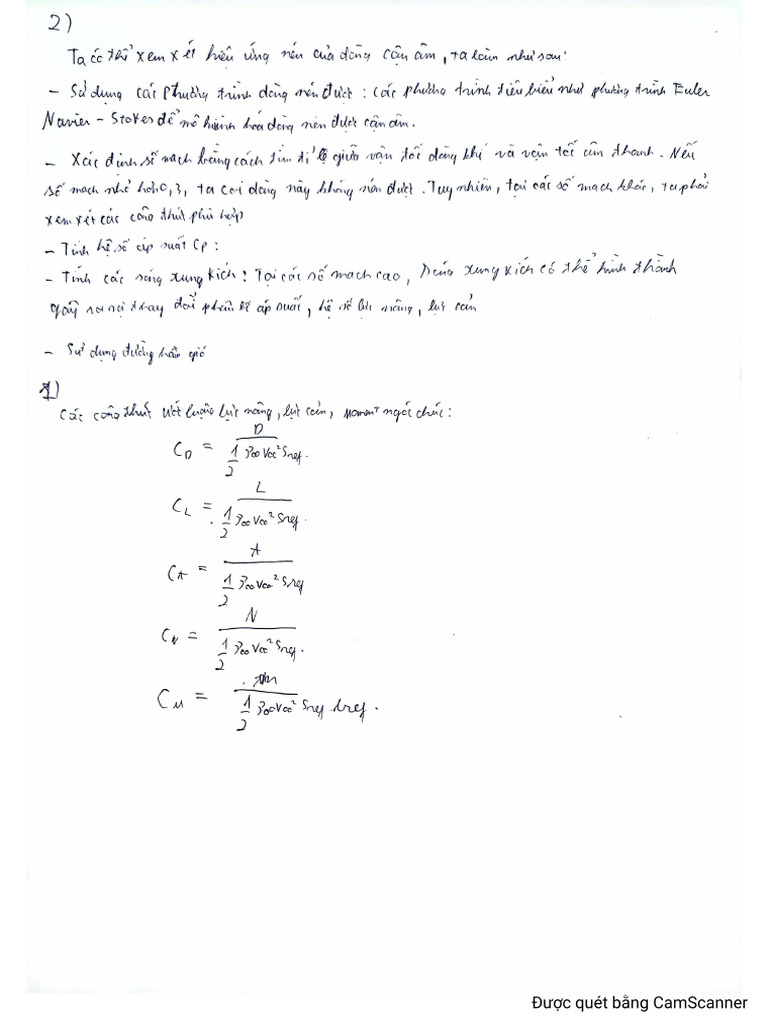 2)
Ta có thể xem xét hiệu ứng nén của dòng cận âm, ta làm như sau:
- Sử dụng các phương trình dòng nén được: các phương trình tiêu biểu như phương trình Euler
Navier - Stokes để mô hình hóa dòng nén được cận âm.
- Xác định số mach bằng cách tìm tỉ lệ giữa vận tốc dòng khí và vận tốc âm thanh. Nếu
số mach nhỏ hơn 0,3, ta coi dòng này không nén được. Tuy nhiên, tại các số mach khác, ta phải
xem xét các công thức phù hợp
- Tính hệ số áp suất Cp:
- Tính các sóng xung kích: Tại các số mach cao, sóng xung kích có thể hình thành
gây ra sự thay đổi phân bố áp suất, hệ số lực nâng, lực cản
- Sử dụng đường hầm gió
1)
Các công thức ước lượng lực nâng, lực cản, Moment ngóc chúc:
C_D = D / (1/2 ρ∞ V∞² Sref.)
C_L = L / (1/2 ρ∞ V∞² Sref.)
C_A = A / (1/2 ρ∞ V∞² Sref)
C_N = N / (1/2 ρ∞ V∞² Sref.)
C_M = m / (1/2 ρ∞ V∞² Sref. lref.)
Được quét bằng CamScanner